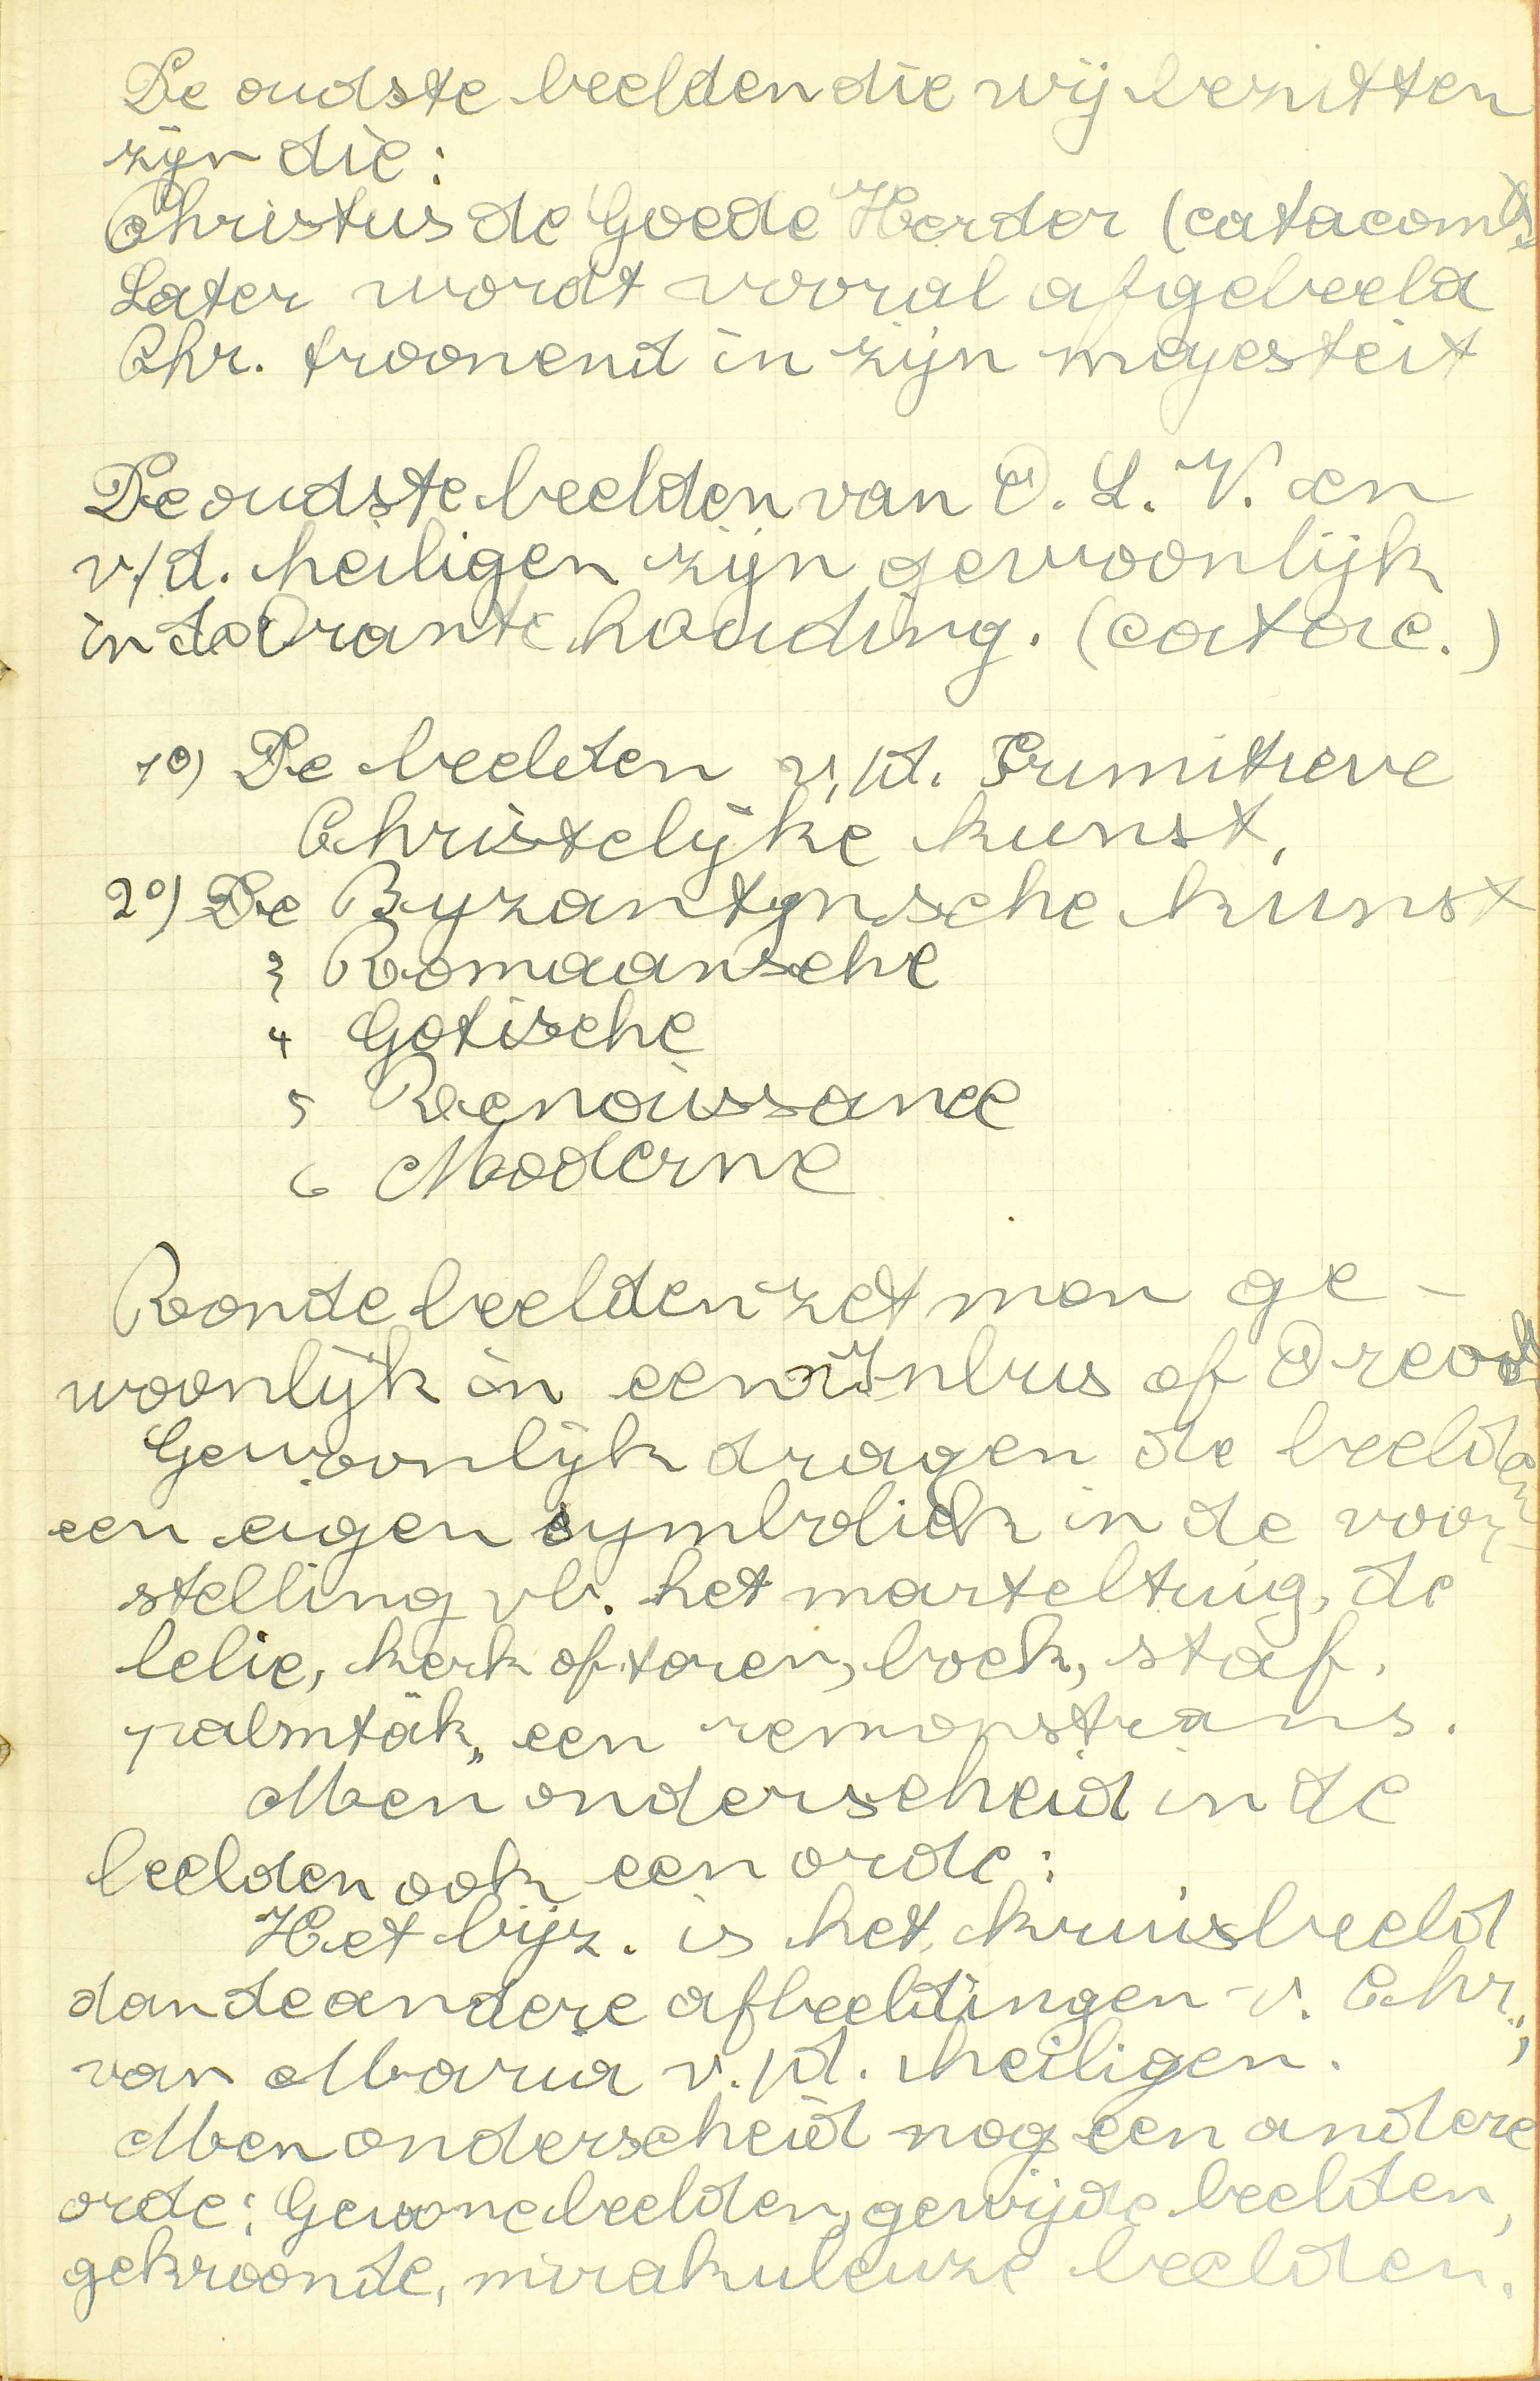 De oudste beelden die wij bezitten
zijn die:
Christus de Goede Herder (catacomb
Later wordt vooral afgebeeld
Chr. troonend in zijn majesteit
De oudste beelden van O. L. V. en
v/d. heiligen zijn gewoonlijk
in de Orante houding. (catac.)
1o) De beelden v/d. Primitieve
Christelijke kunst,
2o) De Byzantynsche kunst
3 Romaansche
4 Gotische
5 Renaissance
6 Moderne
Ronde beelden zet men ge-
woonlijk in een nis of
Gewoonlijk dragen de beelden
een eigen symboliek in de voor-
stelling vb. het marteltuig, de
lelie, kerk of toren, boek, staf,
palmtak, een remonstrans.
Men onderscheid in de
beelden ook een orde:
Het bijz. is het kruisbeeld
dan de andere afbeeldingen v. Chr.,
van Maria v./d. heiligen.
Men onderscheid nog een andere
orde: Gewone beelden, gewijde beelden,
gekroonde, mirakuleuze beelden.